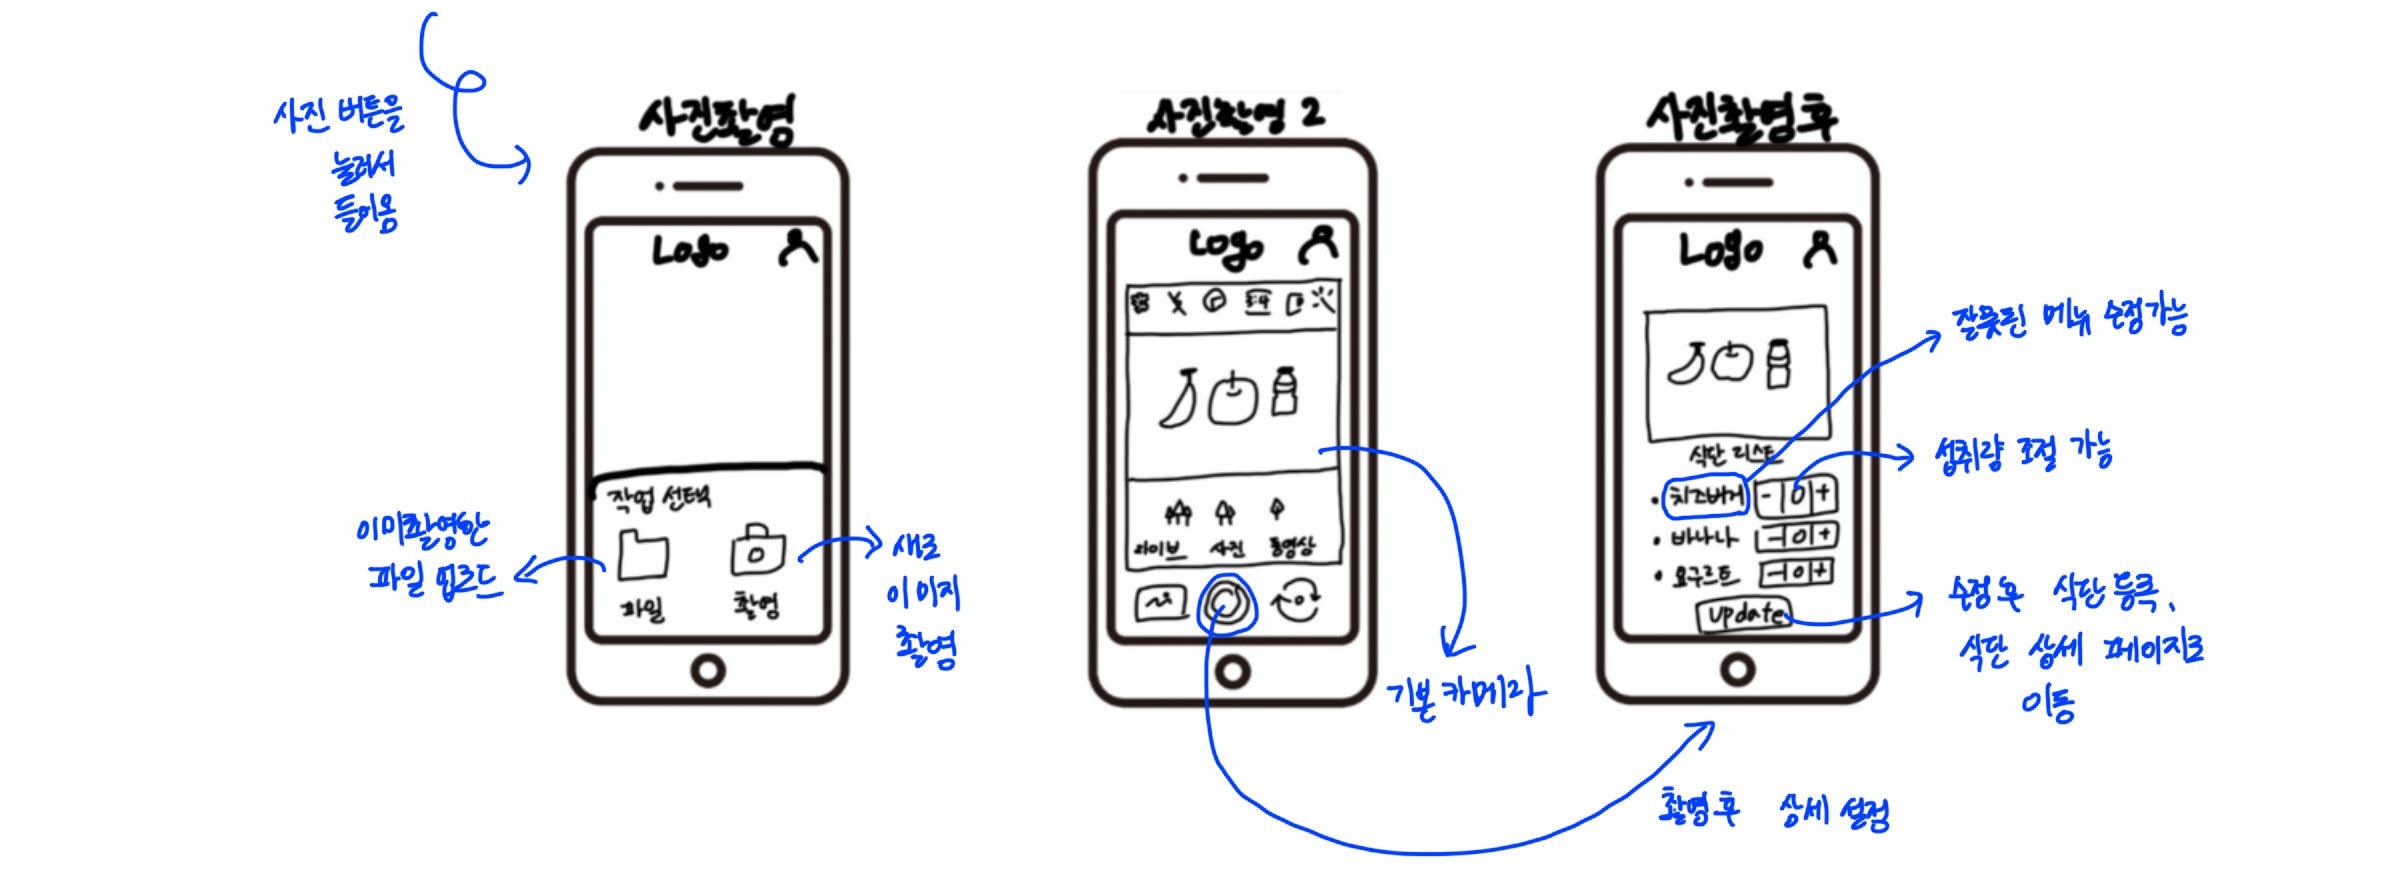 사진 버튼을
눌러서
들어옴
사진촬영
Logo
작업 선택
파일
촬영
이미촬영한
파일 업로드
새로
이미지
촬영
사진촬영 2
Logo
3:4
라이브
사진
동영상
기본 카메라
사진촬영 후
Logo
식단 리스트
• 치즈버거 - 0 +
• 바나나 - 0 +
• 요구르트 - 0 +
update
잘못된 메뉴 수정가능
섭취량 조절 가능
수정 후 식단 등록,
식단 상세 페이지로
이동
촬영 후 상세 설정